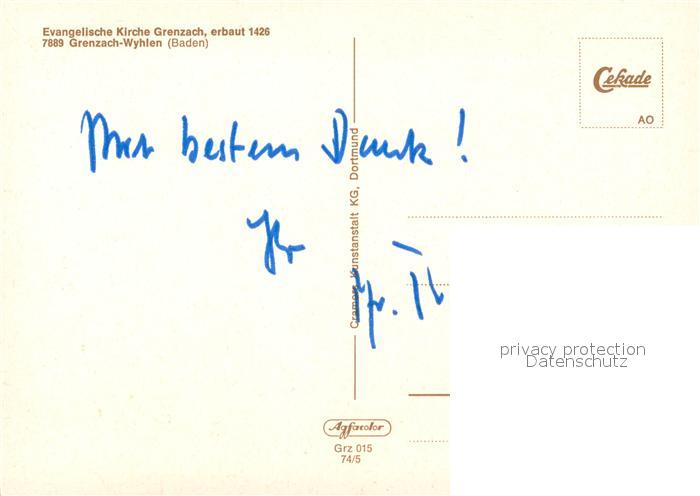 Evangelische Kirche Grenzach, erbaut 1426
7889 Grenzach-Wyhlen (Baden)
Cekade
AO
Mit bestem Dank!
Ihr
Cramers Kunstanstalt KG, Dortmund
privacy protection
Datenschutz
Agfacolor
Grz 015
74/5